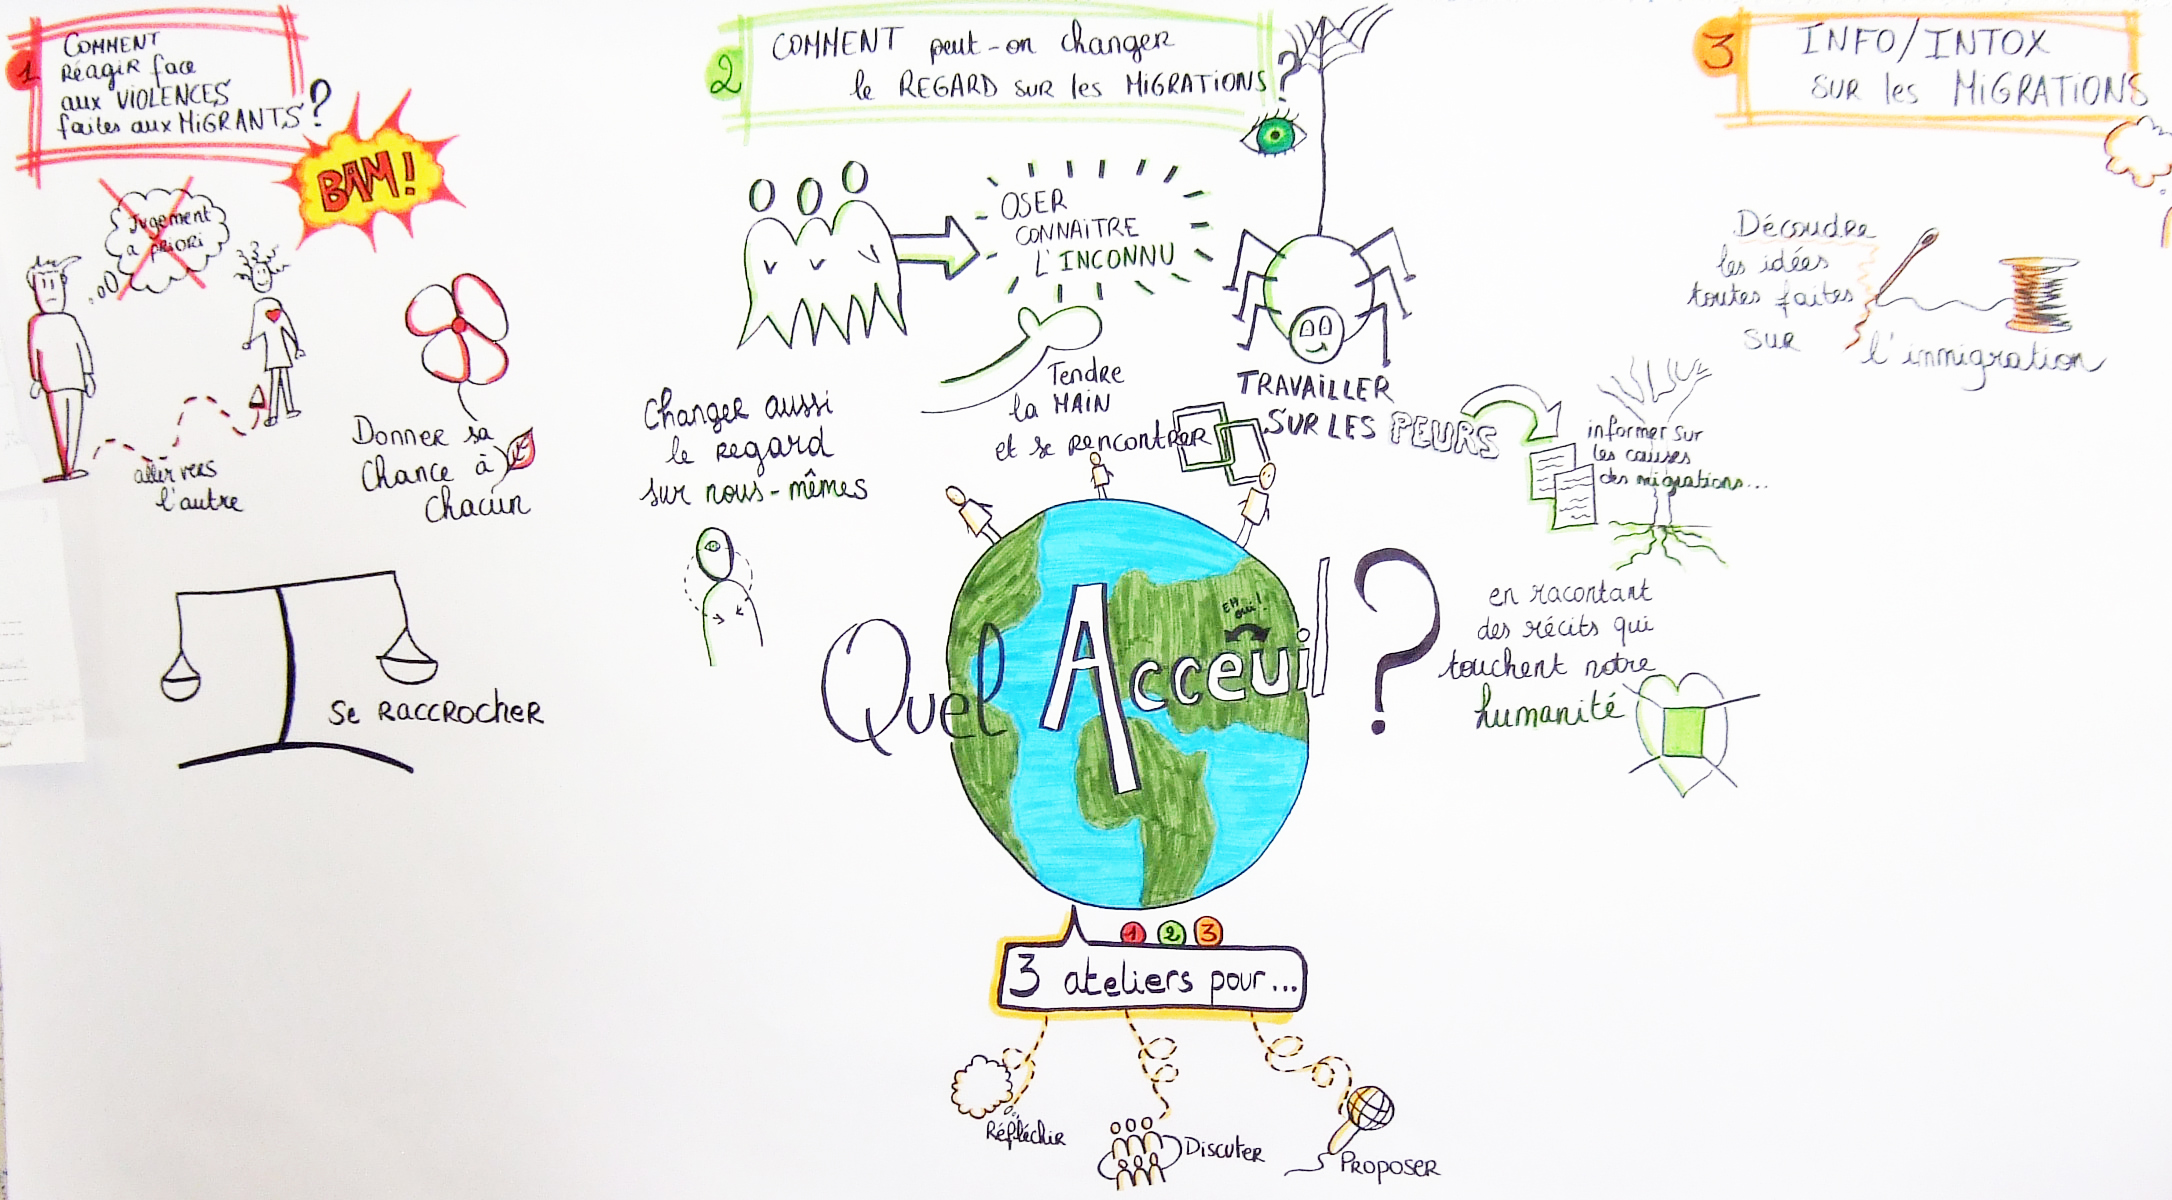 1
COMMENT
RÉAGIR face
aux VIOLENCES
faites aux MiGRANTS ?
BAM!
Jugement
a priori
aller vers
l'autre
Donner sa
Chance à
Chacun
Se RACCROCHER
2
COMMENT peut-on changer
le REGARD SUR les MiGRATIONS ?
OSER
CONNAiTRE
L'INCONNU
Tendre
la MAIN
et se Rencontrer
Changer aussi
le regard
sur nous-mêmes
TRAVAiLLER
SUR LES PEURS
informer sur
les causes
des migrations...
en racontant
des récits qui
touchent notre
humanité
Quel Acceuil ?
EH
oui!
1 2 3
3 ateliers pour...
Réfléchir
Discuter
PROPOSER
3
INFO/INTOX
SUR les MiGRATIONS
Découdre
les idées
toutes faites
sur
l'immigration